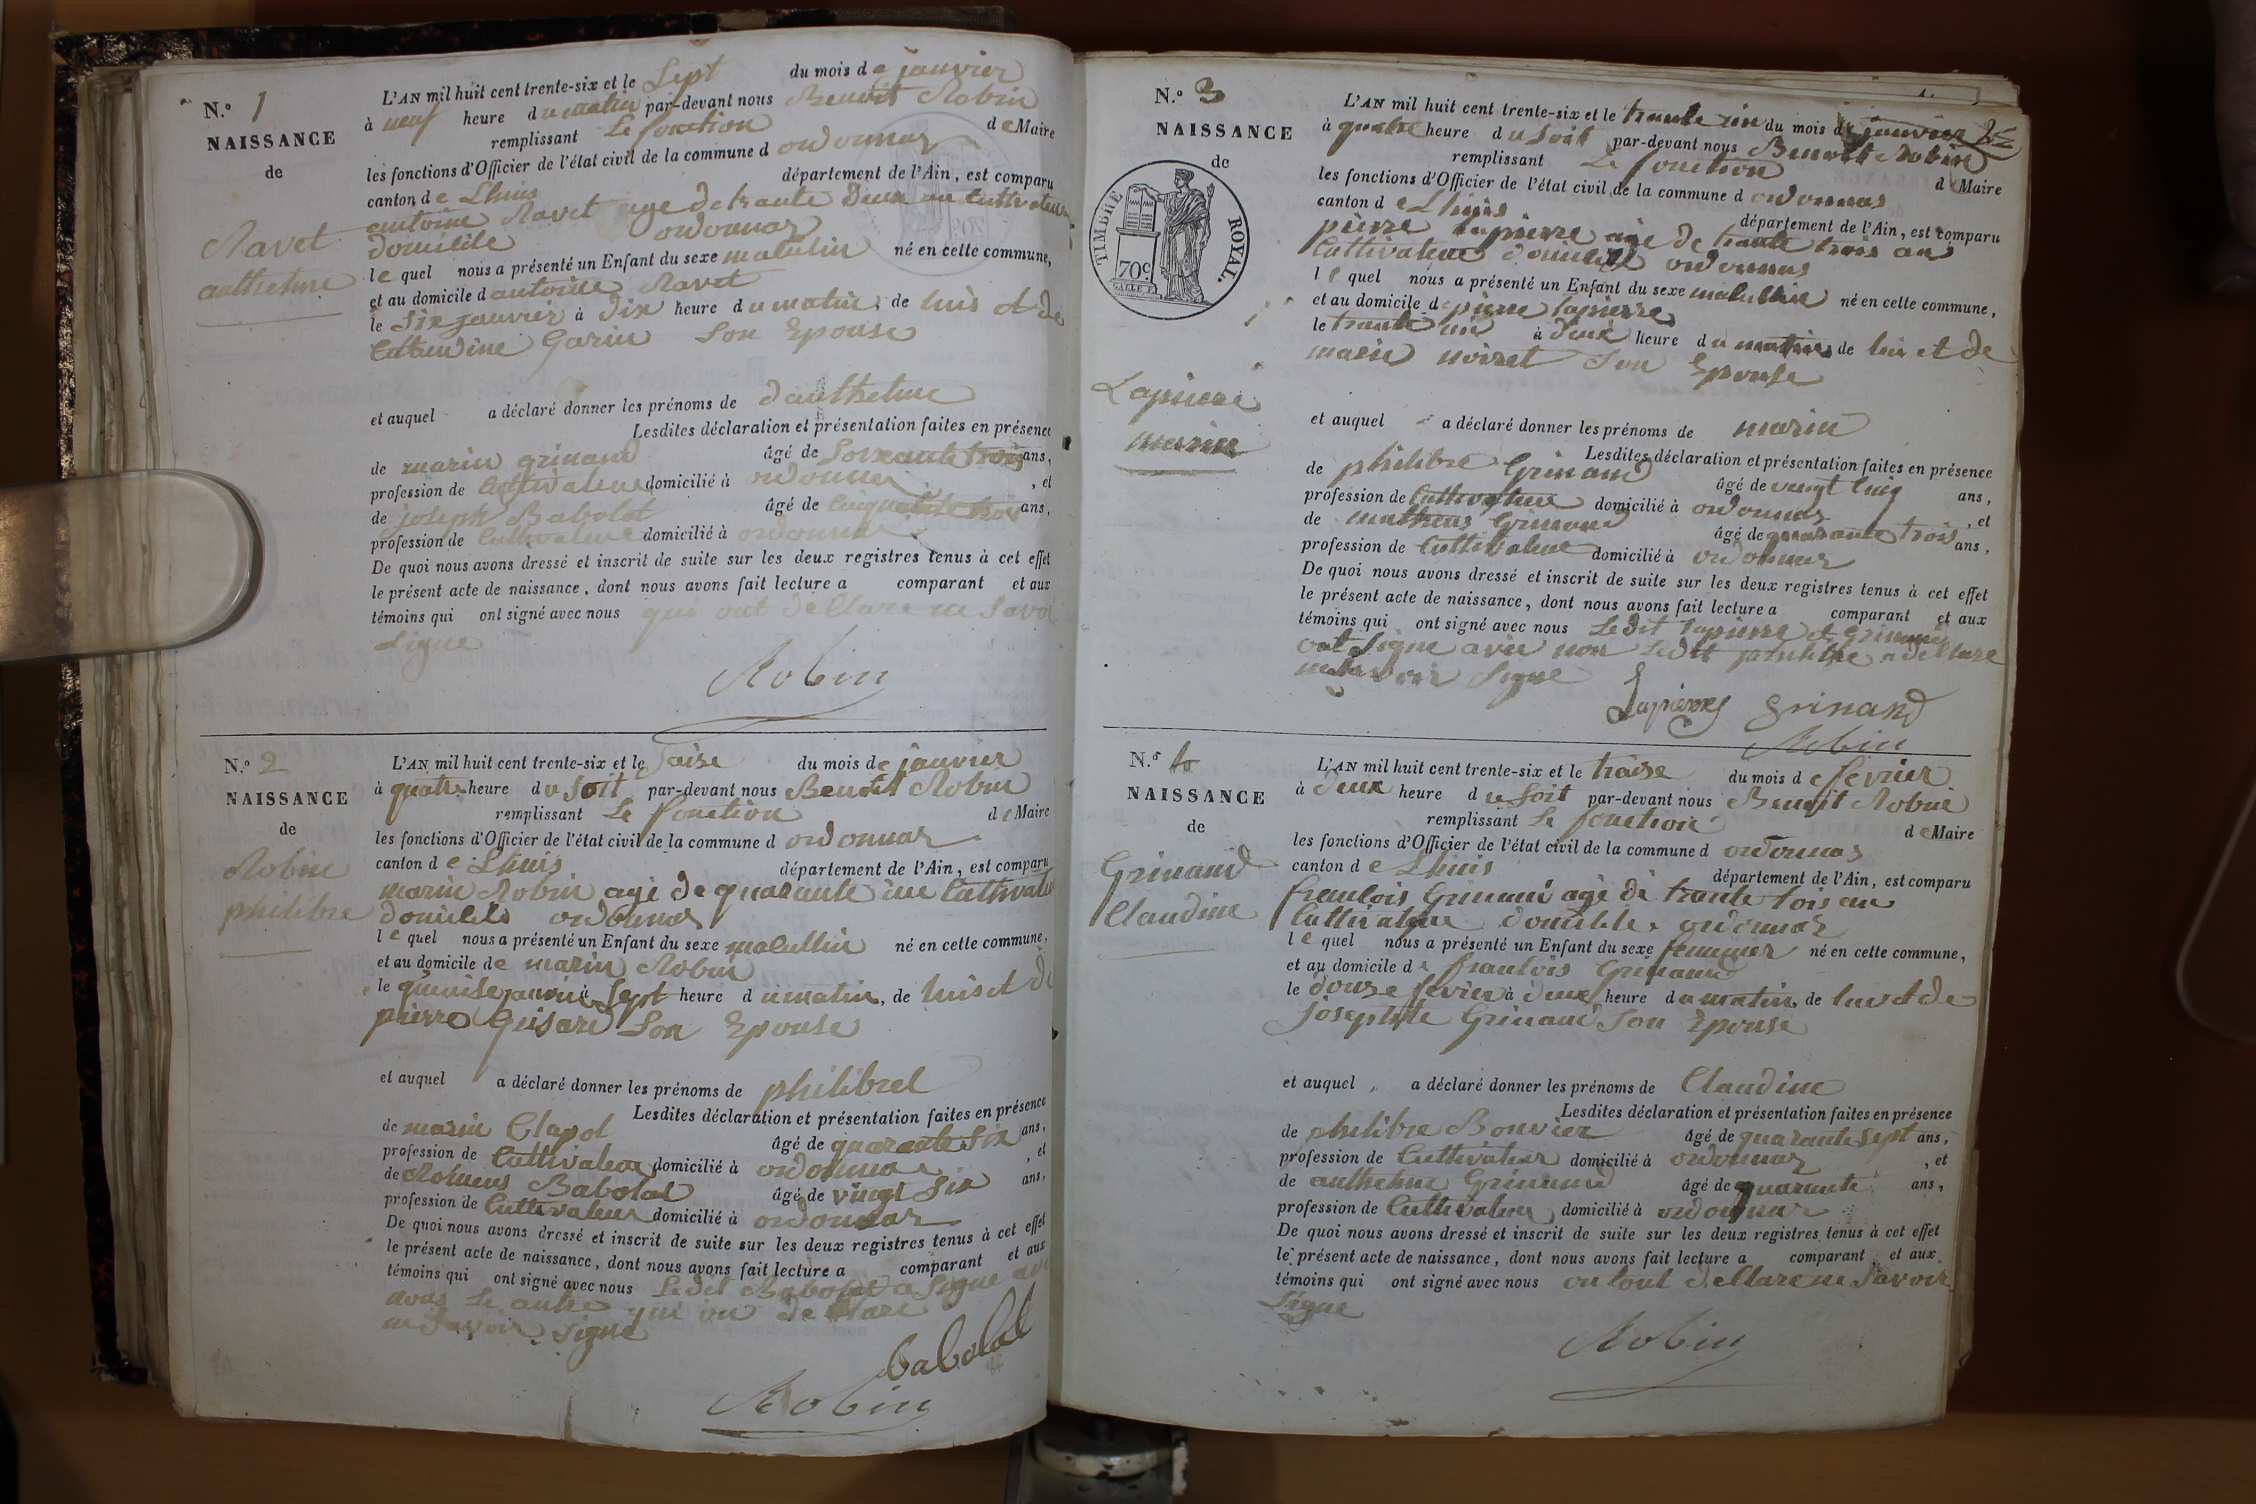 N.º 1
NAISSANCE
de
Ravet
anthelme
L'AN mil huit cent trente-six et le Sept du mois de janvier
à neuf heure du matin par-devant nous Benoit Robin
remplissant le fonction de Maire
les fonctions d'Officier de l'état civil de la commune d ordonnas
canton de Lhuis département de l'Ain, est comparu
antoine Ravet age de trante Deux an Cultivateur
domicilie ordonnas
lequel nous a présenté un Enfant du sexe masculin né en cette commune,
et au domicile d antoine Ravet
le Six janvier à Dix heure du matin, de luis et de
Claudine Garin Son Epouse
et auquel a déclaré donner les prénoms de d'anthelme
Lesdites déclaration et présentation faites en présence
de marin grinand âgé de Soixante trois ans,
profession de Cultivateur domicilié à ordonnas, et
de joseph Babolat âgé de Cinquante trois ans,
profession de Cultivateur domicilié à ordonnas
De quoi nous avons dressé et inscrit de suite sur les deux registres tenus à cet effet
le présent acte de naissance, dont nous avons fait lecture a comparant et aux
témoins qui ont signé avec nous qui ont declare ne Savoir
Signe
Robin
N.º 2
NAISSANCE
de
Robin
philibre
L'AN mil huit cent trente-six et le Saise du mois de janvier
à quatre heure du Soit par-devant nous Benoit Robin
remplissant le fonction de Maire
les fonctions d'Officier de l'état civil de la commune d ordonnas
canton de Lhuis département de l'Ain, est comparu
marin Robin agé de quarante un Cultivateur
domicilé ordonnas
lequel nous a présenté un Enfant du sexe masculin né en cette commune,
et au domicile de marin Robin
le quinse janvier à Sept heure du matin, de luis et de
pierre Guisard Son Epouse
et auquel a déclaré donner les prénoms de philibret
Lesdites déclaration et présentation faites en présence
de marin Clapot âgé de quarante Six ans,
profession de Cultivateur domicilié à ordonnas, et
de Babolat âgé de vingt Six ans,
profession de Cultivateur domicilié à ordonnas
De quoi nous avons dressé et inscrit de suite sur les deux registres tenus à cet effet
le présent acte de naissance, dont nous avons fait lecture a comparant et aux
témoins qui ont signé avec nous Ledit Babolat a Signe avec
nous Le autre qui on declare
ne Savoir Signe
babolat
Robin
N.º 3
NAISSANCE
de
TIMBRE ROYAL.
70c
Lapierre
marin
L'AN mil huit cent trente-six et le trante un du mois de janvier
à quatre heure du Soit par-devant nous Benoit Robin
remplissant Le fonction de Maire
les fonctions d'Officier de l'état civil de la commune d ordonnas
canton de Lhuis département de l'Ain, est comparu
pierre lapierre age de trante trois ans
Cultivateur domicilie ordonnas
lequel nous a présenté un Enfant du sexe masculin né en cette commune,
et au domicile de pierre lapierre
le trante un à deux heure du matin de lui et de
marie noiret Son Epouse
et auquel a déclaré donner les prénoms de marin
Lesdites déclaration et présentation faites en présence
de philibre Grinand âgé de vingt Cinq ans,
profession de Cultivateur domicilié à ordonnas, et
de matheus Grinand âgé de quarante trois ans,
profession de Cultivateur domicilié à ordonnas
De quoi nous avons dressé et inscrit de suite sur les deux registres tenus à cet effet
le présent acte de naissance, dont nous avons fait lecture a comparant et aux
témoins qui ont signé avec nous Ledit Lapierre et grinand
ont Signe avec nou Ledit philibre a declare
ne Savoir Signe
Lapierre grinand
Robin
N.º 4
NAISSANCE
de
Grinand
Claudine
L'AN mil huit cent trente-six et le traise du mois de fevrier
à deux heure du Soit par-devant nous Benoit Robin
remplissant Le fonction de Maire
les fonctions d'Officier de l'état civil de la commune d ordonnas
canton de Lhuis département de l'Ain, est comparu
francois Grinand agé de trante tois an
Cultivateur domicilie ordonnas
lequel nous a présenté un Enfant du sexe né en cette commune,
et au domicile de francois Grinand
le douse fevrier à deux heure du matin, de lui et de
josephte Grinand Son Epouse
et auquel a déclaré donner les prénoms de Claudine
Lesdites déclaration et présentation faites en présence
de philibre Bouvier âgé de quarante Sept ans,
profession de Cultivateur domicilié à ordonnas, et
de anthelme Grinand âgé de quarante ans,
profession de Cultivateur domicilié à ordonnas
De quoi nous avons dressé et inscrit de suite sur les deux registres tenus à cet effet
le présent acte de naissance, dont nous avons fait lecture a comparant et aux
témoins qui ont signé avec nous on tout declare ne Savoir
Signe
Robin